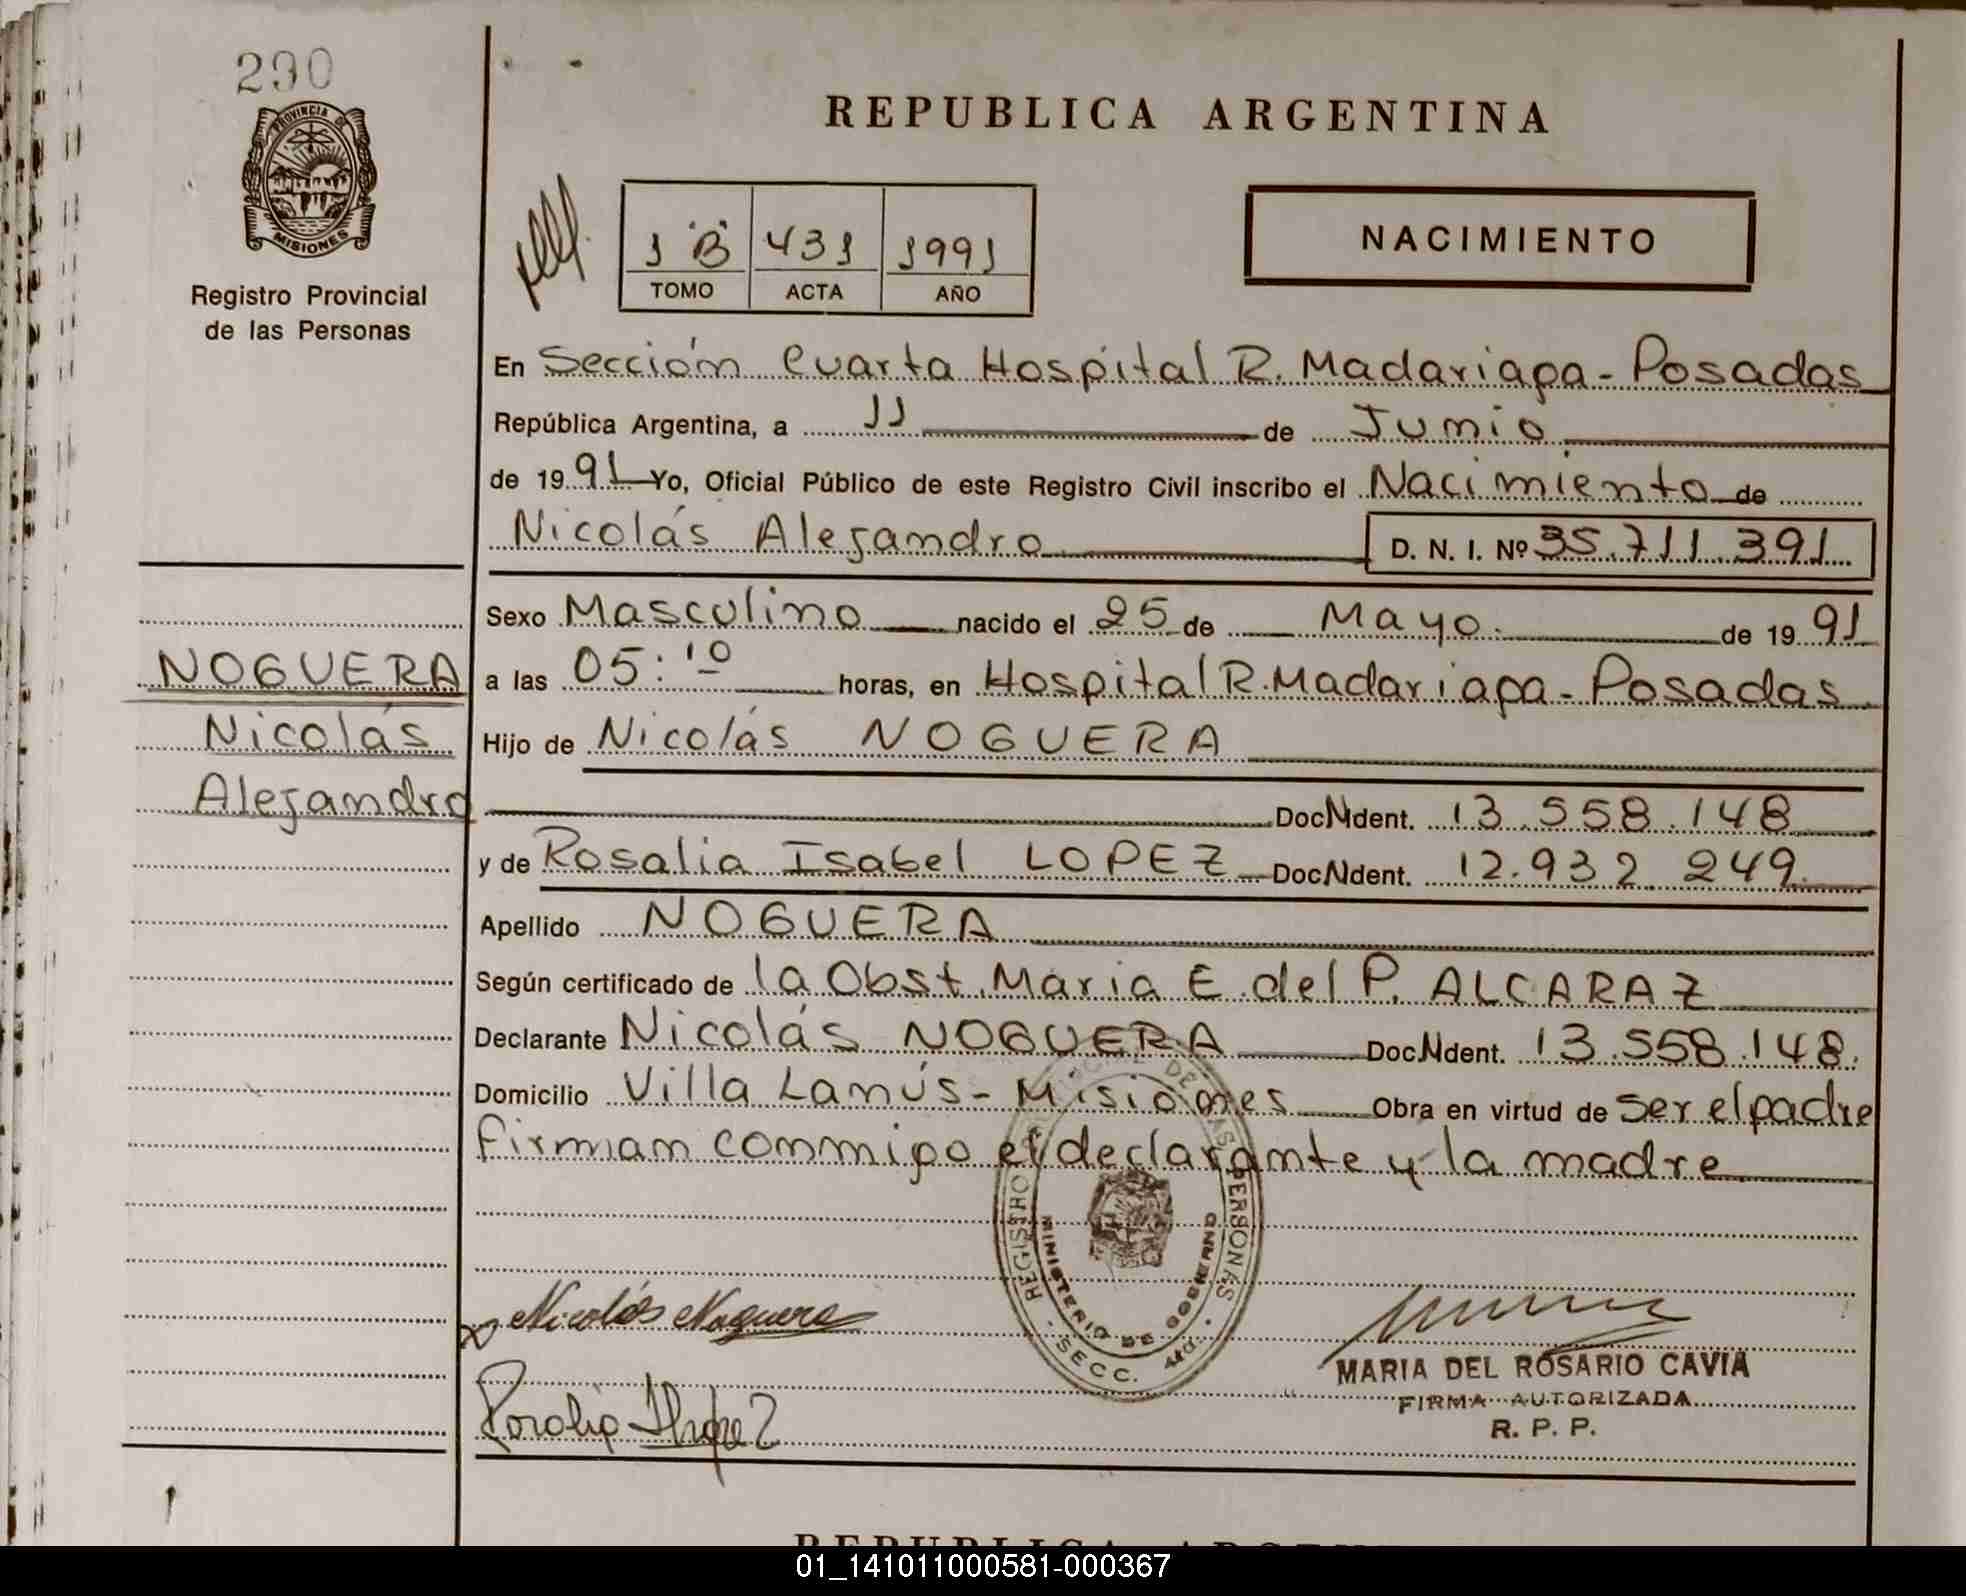 290
PROVINCIA DE
MISIONES
Registro Provincial
de las Personas
REPUBLICA ARGENTINA
1 "B" 431 1991
TOMO ACTA AÑO
NACIMIENTO
En Sección Cuarta Hospital R. Madariaga - Posadas
República Argentina, a 11 de Junio
de 1991 Yo, Oficial Público de este Registro Civil inscribo el Nacimiento de
Nicolás Alejandro D. N. I. Nº 35.711.391
Sexo Masculino nacido el 25 de Mayo de 1991
a las 05:10 horas, en Hospital R. Madariaga - Posadas
Hijo de Nicolás NOGUERA
Doc. Ident. 13.558.148
y de Rosalia Isabel LOPEZ Doc. Ident. 12.932.249
Apellido NOGUERA
Según certificado de la Obst. Maria E. del P. ALCARAZ
Declarante Nicolás NOGUERA Doc. Ident. 13.558.148.
Domicilio Villa Lanús - Misiones Obra en virtud de ser el padre
firman conmigo el declarante y la madre
NOGUERA
Nicolás
Alejandro
REGISTRO DE LAS PERSONAS
MINISTERIO DE GOBIERNO
SECC. 4ta.
Nicolás Noguera
MARIA DEL ROSARIO CAVIA
FIRMA AUTORIZADA
R. P. P.
01_141011000581-000367